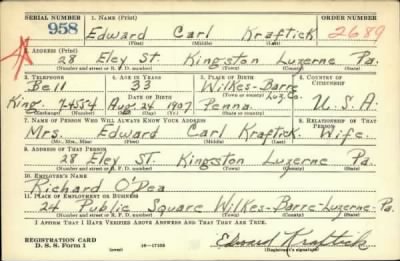 SERIAL NUMBER 1. NAME (Print) ORDER NUMBER
958 Edward Carl Kraftick 2689
(First) (Middle) (Last)
2. ADDRESS (Print)
28 Eley ST. Kingston Luzerne Pa.
(Number and street or R. F. D. number) (Town) (County) (State)
3. TELEPHONE 4. AGE IN YEARS 5. PLACE OF BIRTH 6. COUNTRY OF CITIZENSHIP
Bell 33 Wilkes-Barre
(Town or county) Luz. Co.
King. 74554 Aug. 24 1907 Penna. U.S.A.
(Exchange) (Number) (Mo.) (Day) (Yr.) (State or country)
7. NAME OF PERSON WHO WILL ALWAYS KNOW YOUR ADDRESS 8. RELATIONSHIP OF THAT PERSON
Mrs. Edward Carl Kraftick Wife.
(Mr., Mrs., Miss) (First) (Middle) (Last)
9. ADDRESS OF THAT PERSON
28 Eley ST. Kingston Luzerne Pa.
(Number and street or R. F. D. number) (Town) (County) (State)
10. EMPLOYER'S NAME
Richard O'Dea
11. PLACE OF EMPLOYMENT OR BUSINESS
24 Public Square Wilkes-Barre-Luzerne-Pa.
(Number and street or R. F. D. number) (Town) (County) (State)
I AFFIRM THAT I HAVE VERIFIED ABOVE ANSWERS AND THAT THEY ARE TRUE.
REGISTRATION CARD
D. S. S. Form 1 (over) 16—17105 Edward Kraftick
(Registrant's signature)